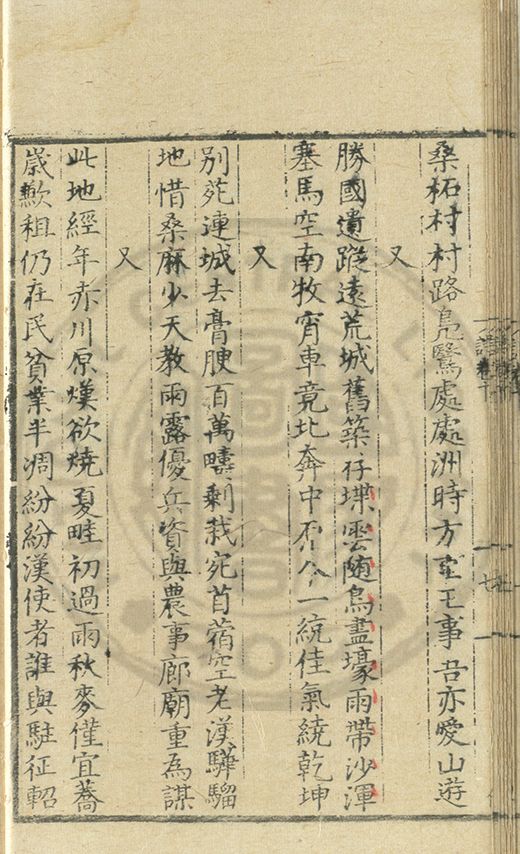 桑柘村村路鳧鷖處處洲時方堇王事吾亦愛山遊
又
勝國遺蹤遠荒城舊築存堞雲随鳥盡壕雨帶沙渾
塞馬空南牧宵車竟北奔中丕今一統佳氣繞乾坤
又
別苑連城去膏腴百萬疇剩栽宛苜蓿空老漢驊騮
地惜桑麻少天教雨露優兵資與農事廊廟重為謀
又
此地經年赤川原熯欲燒夏畦初過雨秋麥僅宜蕎
歲歉租仍在民貧業半凋紛紛漢使者誰與駐征軺